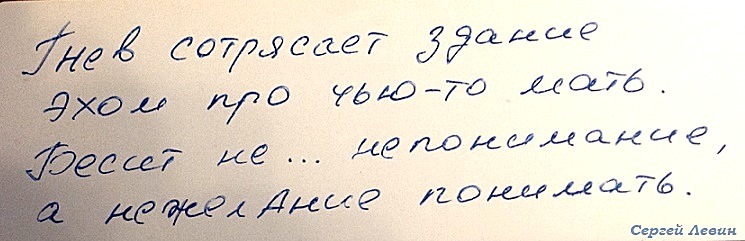 Гнев сотрясает здание
эхом про чью-то мать.
Бесит не... непонимание,
а нежелАние понимать.
Сергей Левин